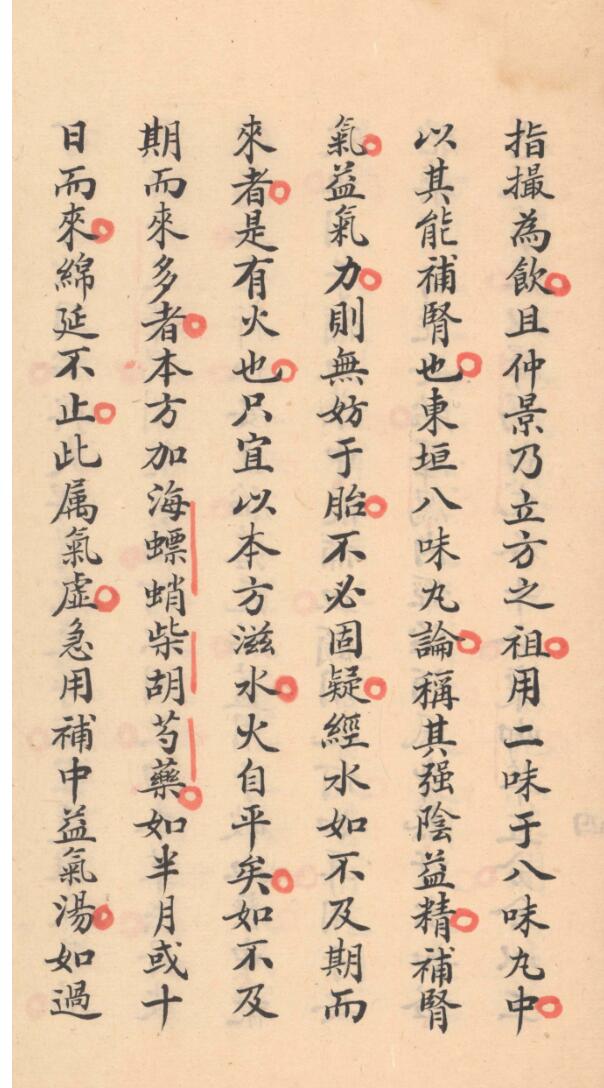 指撮為飲且仲景乃立方之祖用二味于八味丸中
以其能補腎也東垣八味丸論稱其强陰益精補腎
氣益氣力則無妨于胎不必固疑經水如不及期而
來者是有火也只宜以本方滋水火自平矣如不及
期而來多者本方加海螵蛸柴胡芍藥如半月或十
日而來綿延不止此属氣虛急用補中益氣湯如過